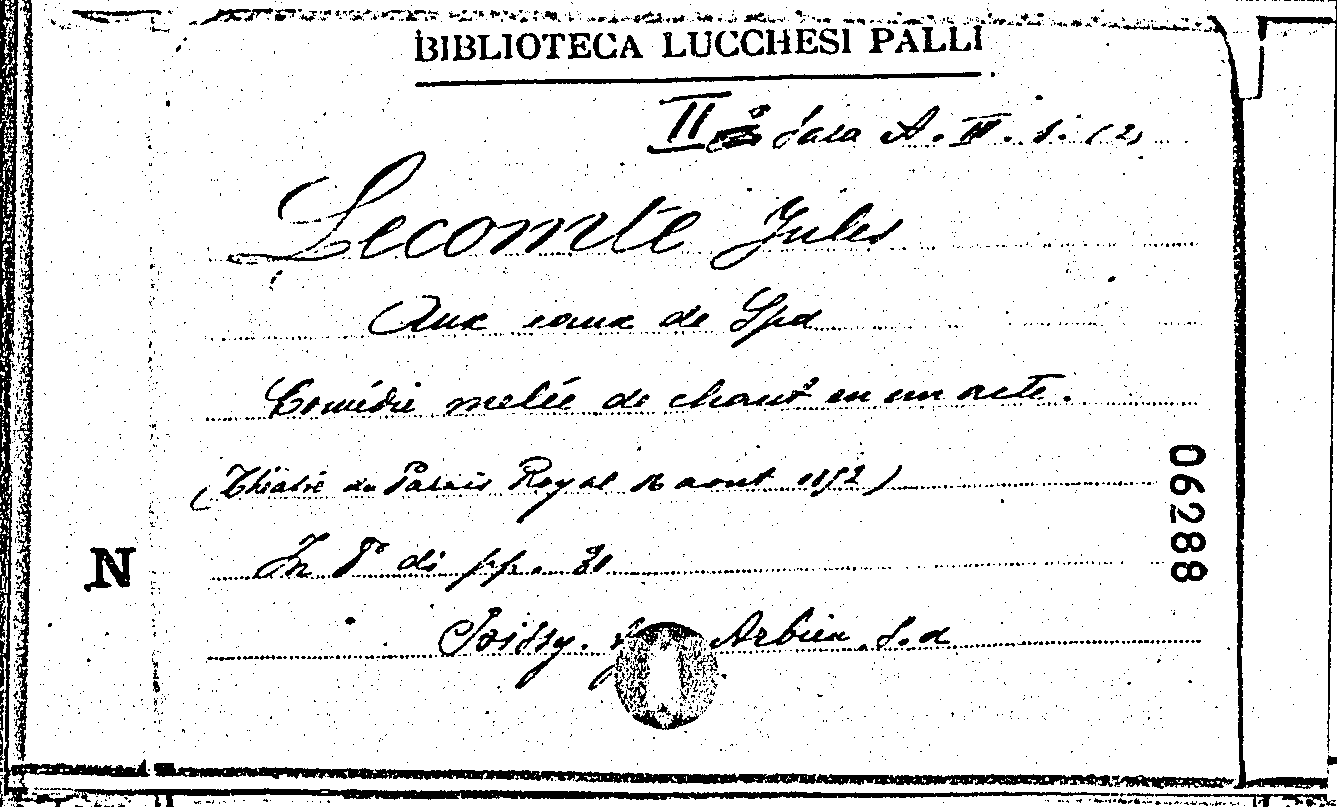 BIBLIOTECA LUCCHESI PALLI
II Sala A. VI. 8. (2)
Lecomte Jules
Aux eaux de Spa
Comédie melée de chant en un acte.
(Théatre du Palais Royal 16 aout 1852)
In 8° di pp. 31
N
06288
Poissy. Arbieu s.d